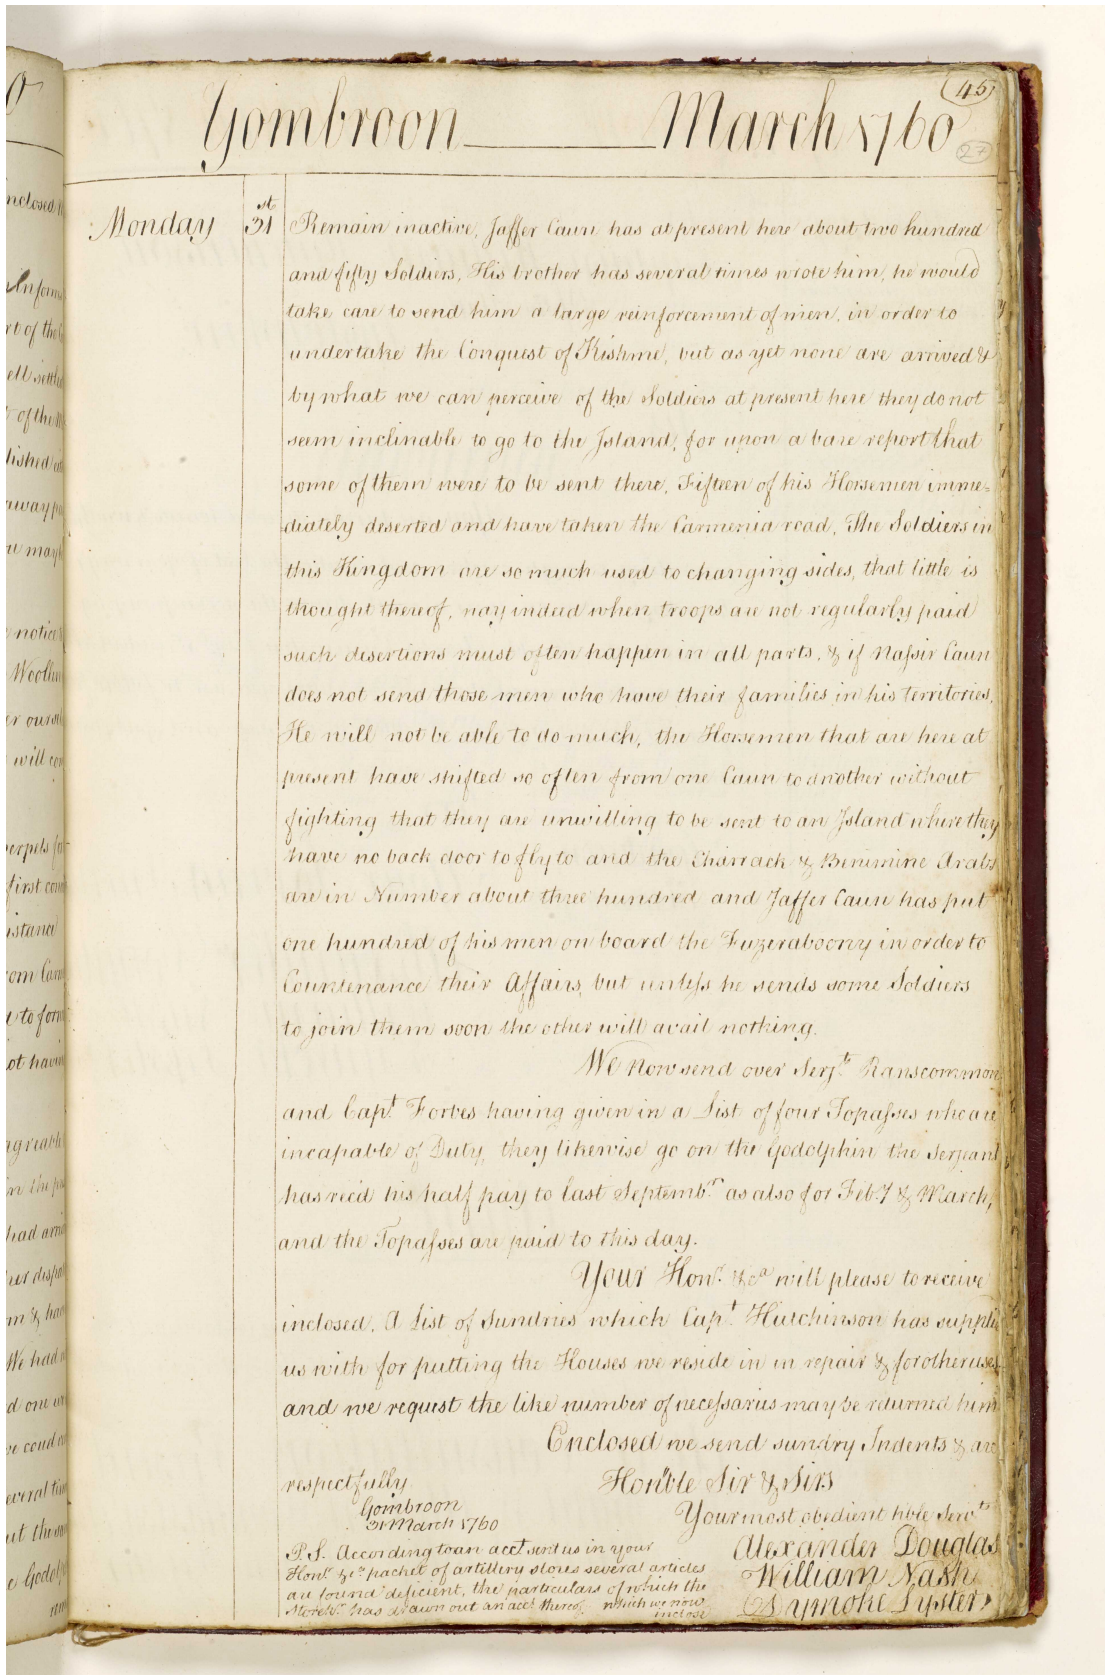 45
Gombroon March 1760
27
Monday 31st Remain inactive, Jaffer Caun has at present here about two hundred
and fifty Soldiers, His brother has several times wrote him, he would
take care to send him a large reinforcement of men, in order to
undertake the Conquest of Kishme, but as yet none are arrived &
by what we can perceive of the Soldiers at present here they do not
seem inclinable to go to the Island, for upon a bare report that
some of them were to be sent there, Fifteen of his Horsemen imme=
diately deserted and have taken the Carmenia road, The Soldiers in
this Kingdom are so much used to changing sides, that little is
thought thereof, nay indeed when troops are not regularly paid
such desertions must often happen in all parts, & if Nassir Caun
does not send those men who have their families in his territories,
He will not be able to do much, the Horsemen that are here at
present have shifted so often from one Caun to another without
fighting that they are unwilling to be sent to an Island where they
have no back door to fly to and the Charrack & Benimine Arabs
are in Number about three hundred and Jaffer Caun has put
one hundred of his men on board the Fuzeraboony in order to
Countenance their Affairs, but unless he sends some Soldiers
to join them soon the other will avail nothing.
We now send over Serjt. Ranscommon
and Capt. Forbes having given in a List of four Topasses who are
incapable of Duty, they likewise go on the Godolphin the Serjeant
has rec'd his half pay to last Septembr. as also for Feby & March,
and the Topasses are paid to this day.
Your Honr. &ca will please to receive
inclosed, A List of Sundries which Capt. Hutchinson has supplied
us with for putting the Houses we reside in in repair & for other uses
and we request the like number of necessaries may be returned him
Enclosed we send sundry Indents & are
respectfully Hon'ble Sir & Sirs
Gombroon
31 March 1760
Your most obedient hble Servts
Alexander Douglas
William Nash
Dymoke Lyster
P.S. According to an acct. sent us in your
Honr. &ca packet of artillery stores several articles
are found deficient, the particulars of which the
Storekr. has drawn out an acct. thereof which we now
inclose